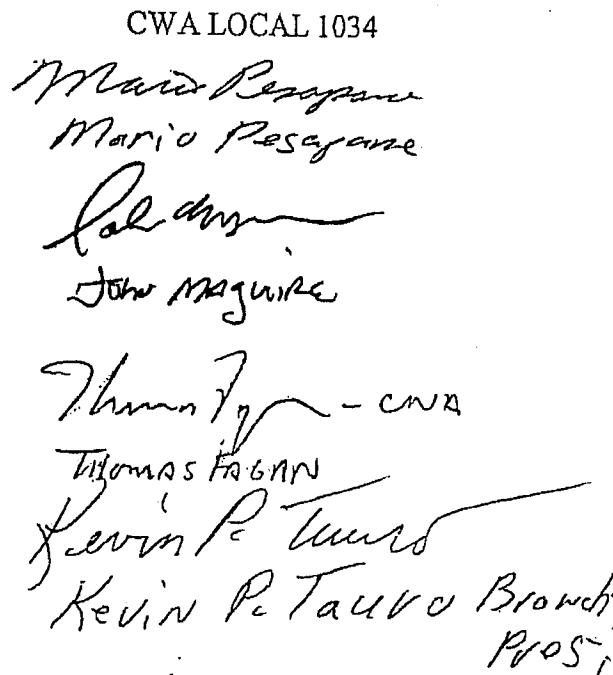 CWA LOCAL 1034
Mario Pesapane
Mario Pesapane
John Maguire
Thomas Fagan - CWA
THOMAS FAGAN
Kevin P. Tauro
Kevin P. Tauro Branch
Pres.